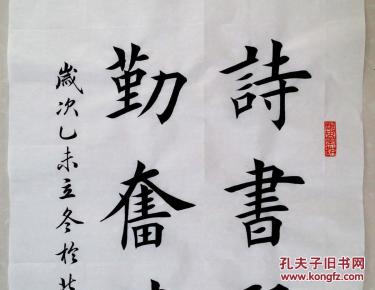 詩書
勤奮
歲次乙未立冬於
孔夫子旧书网
www.kongfz.com